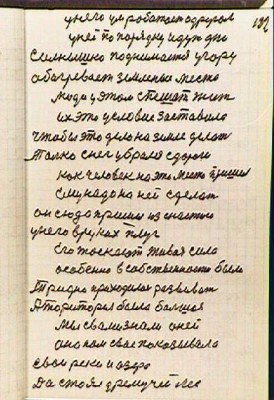 192
у него ум работает о другом
у ней по порядку идут дни
Солнышко поднимается у гору
обогревает земльное место
люди у этом спешат жит
их это условие заставило
чтобы это дело на земле делат
Толко снег убрался здорои
как человек на это место пришел
ему надо на ней сделат
он сюда пришел из снастью
у него в руках плуг
Его таскает живая сила
особенно в собственности было
Трудно приходилос развиват
Я територыя была балшоя
мы с вами знам о ней
она нам свае показывала
свои реки и озера
Да стоял дремучей лес